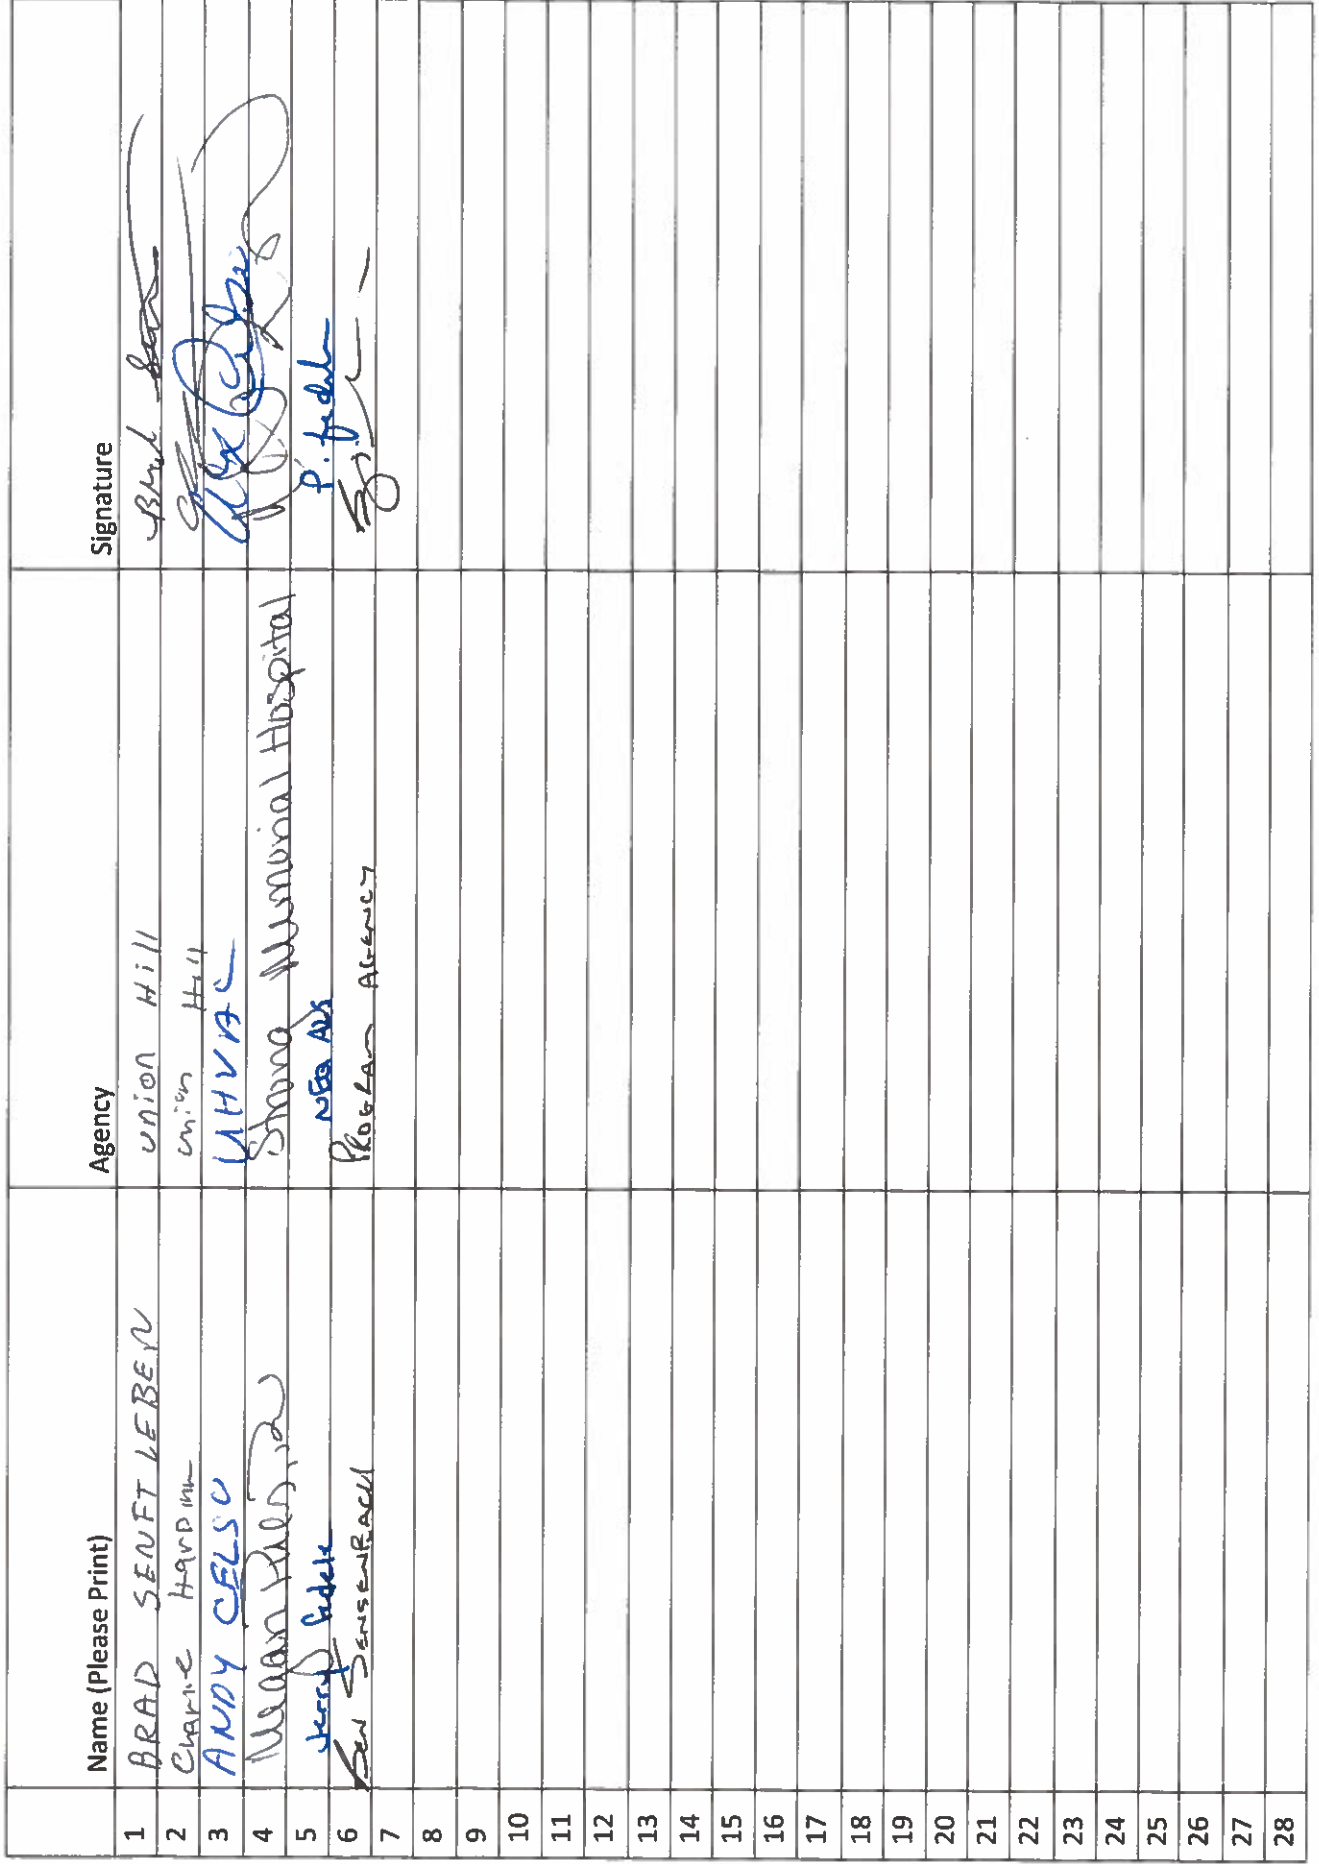 Name (Please Print) Agency Signature
1 BRAD SENFTLEBEN UNION Hill
2 Charlie Hardin union Hill
3 ANDY CELSO UHVAC
4 Megan Strong Memorial Hospital
5 Jerry Fedele P.
6 Ben Sensenbach PROGRAM AGENCY
7
8
9
10
11
12
13
14
15
16
17
18
19
20
21
22
23
24
25
26
27
28